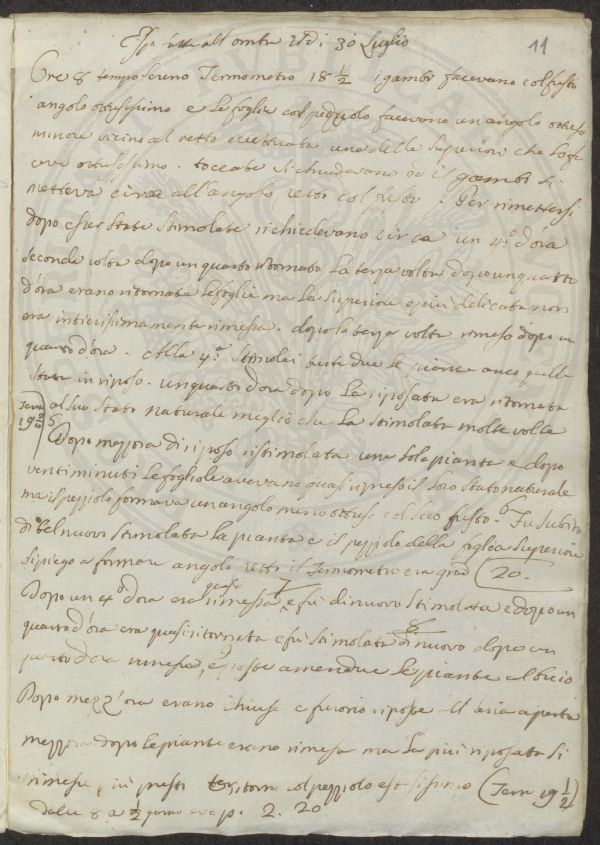 11
Esp. fatte all'ombra il dì 30 Luglio
Ore 8 tempo sereno Termometro 18 1/2 i gambi facevano col fusto
angolo ottusissimo e le foglie col pezzuolo facevano un angolo ottuso
minore vicino al retto eccettuata una delle superiori che lo
ottusissimo. toccate si chiudevano ed il gambi si
metteva circa all'angolo retto col fusto. Per rimettersi
dopo esser state stimolate richiedevano circa un 4.º d'ora
seconda volta dopo un quarto ritornato la terza volta dopo un quarto
d'ora erano ritornate le foglie ma la superiore e più delicata non
era intierissimamente rimessa. dopo la terza volta rimeso dopo un
quarto d'ora. Alla 4.ª stimolai tutte due le piante anco quella
stata in riposo. un quarto d'ora dopo la riposata era ritornata
al suo stato naturale meglio che la stimolata molte volte
Term 19
5 Dopo mezzora di riposo ristimolata una sola pianta e dopo
venti minuti le fogliole avevano quasi ripreso il loro stato naturale
ma il pezziolo formava un angolo meno ottuso col suo fusto. 6 Fu subito
di bel nuovo stimolata la pianta e il pezziolo della foglia superiore
si piegò a formare angolo retto il Termometro era grad 20.
Dopo un 4º d'ora era quasi rimessa 7 e fu di nuovo stimolata e dopo un
quarto d'ora era quasi ritornata e fu stimolata 8 di nuovo dopo un
quarto d'ora rimessa, e poste amendue le piante al buio
Dopo mezz'ora erano chiuse e furono riposte all'aria aperta
mezzora dopo le piante erano rimesse ma la più riposata si
rimesse più presto ritorna col pezziolo estesissimo (Term 19 1/2)
dalle 8 a 1/2 giorno p. 2. 20